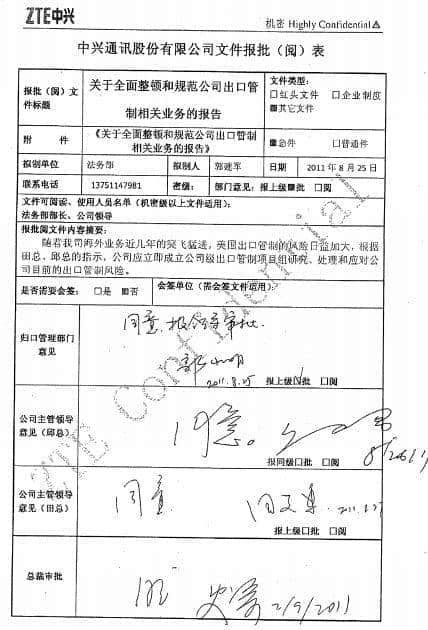 ZTE中兴
机密 Highly Confidential△
中兴通讯股份有限公司文件报批（阅）表
报批（阅）文件标题
关于全面整顿和规范公司出口管制相关业务的报告
文件类型：
□红头文件 □企业制度
■其它文件
附 件
《关于全面整顿和规范公司出口管制相关业务的报告》
■急件 □普通件
拟制单位 法务部 拟制人 郭建军 日期 2011年8月25日
联系电话 13751147981 密级： 部门意见：报上级■批 □阅
文件可阅读、使用人员名单（机密级以上文件适用）：
法务部部长、公司领导
报批阅文件内容摘要：
随着我司海外业务近几年的突飞猛进，美国出口管制的风险日益加大，根据
田总、邱总的指示，公司应立即成立公司级出口管制项目组研究、处理和应对公
司目前的出口管制风险。
是否需要会签： □是 ■否 会签单位（需会签文件适用）：
归口管理部门意见
同意，报领导审批
2011.8.25
报上级☑批 □阅
公司主管领导意见（邱总）
同意。
报同级□批 □阅
公司主管领导意见（田总）
同意
报上级□批 □阅
总裁审批
2/9/2011
ZTE Confidential